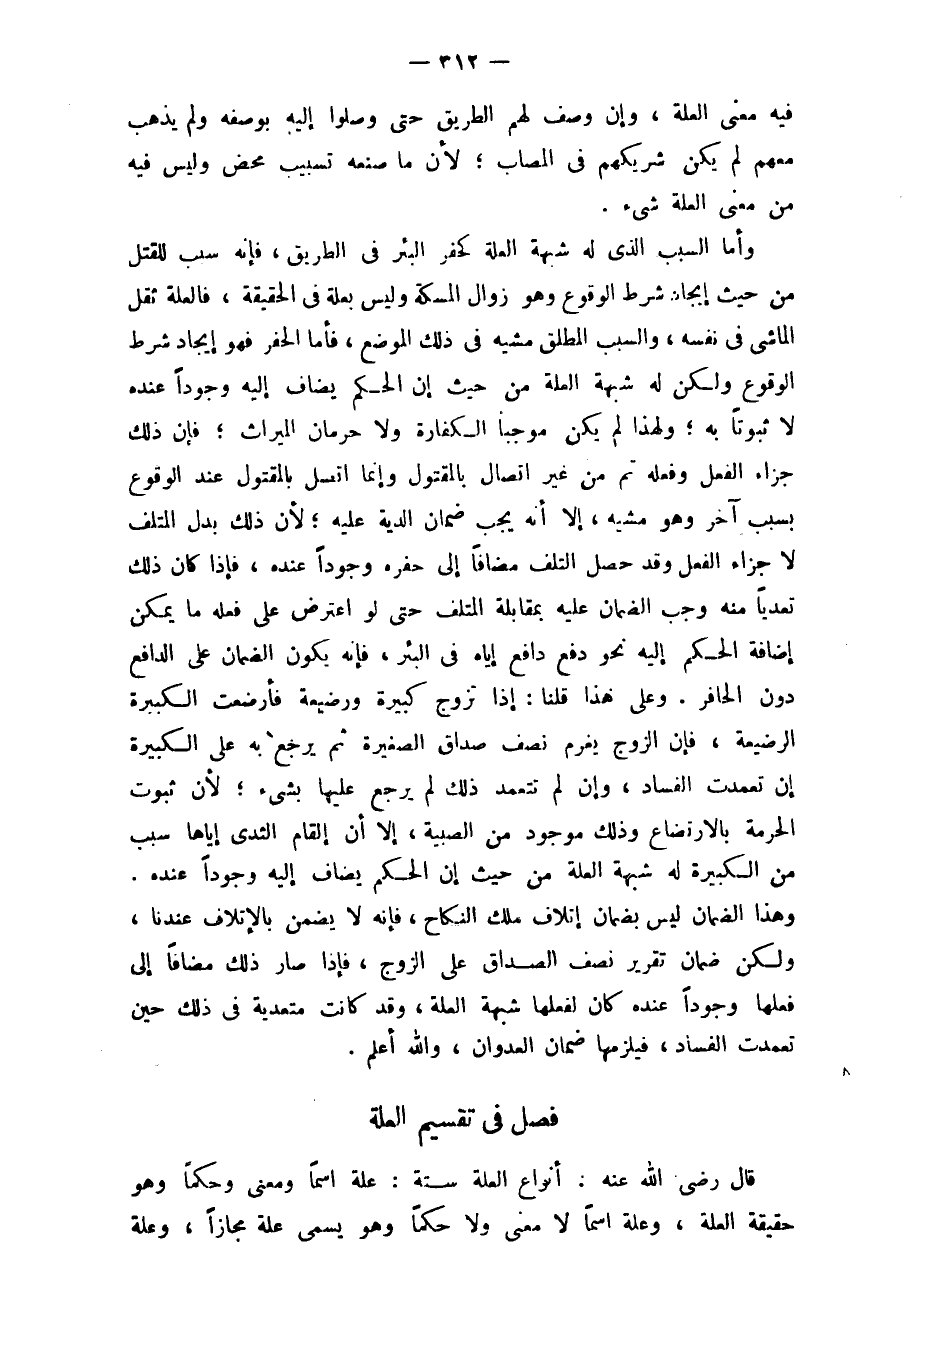 — ٣١٢ —
فيه معنى العلة ، وإن وصف لهم الطريق حتى وصلوا إليه بوصفه ولم يذهب
معهم لم يكن شريكهم فى المصاب ؛ لأن ما صنعه تسبيب محض وليس فيه
من معنى العلة شىء .
وأما السبب الذى له شبهة العلة كحفر البئر فى الطريق ، فإنه سبب للقتل
من حيث إيجاد شرط الوقوع وهو زوال المسكة وليس بعلة فى الحقيقة ، فالعلة ثقل
الماشى فى نفسه ، والسبب المطلق مشيه فى ذلك الموضع ، فأما الحفر فهو إيجاد شرط
الوقوع ولكن له شبهة العلة من حيث إن الحكم يضاف إليه وجوداً عنده
لا ثبوتاً به ؛ ولهذا لم يكن موجباً الكفارة ولا حرمان الميراث ؛ فإن ذلك
جزاء الفعل وفعله تم من غير اتصال بالمقتول وإنما اتصل بالمقتول عند الوقوع
بسبب آخر وهو مشيه ، إلا أنه يجب ضمان الدية عليه ؛ لأن ذلك بدل المتلف
لا جزاء الفعل وقد حصل التلف مضافاً إلى حفره وجوداً عنده ، فإذا كان ذلك
تعدياً منه وجب الضمان عليه بمقابلة المتلف حتى لو اعترض على فعله ما يمكن
إضافة الحكم إليه نحو دفع دافع إياه فى البئر ، فإنه يكون الضمان على الدافع
دون الحافر . وعلى هذا قلنا : إذا تزوج كبيرة ورضيعة فأرضعت الكبيرة
الرضيعة ، فإن الزوج يغرم نصف صداق الصغيرة ثم يرجع به على الكبيرة
إن تعمدت الفساد ، وإن لم تتعمد ذلك لم يرجع عليها بشىء ؛ لأن ثبوت
الحرمة بالارتضاع وذلك موجود من الصبية ، إلا أن إلقام الثدى إياها سبب
من الكبيرة له شبهة العلة من حيث إن الحكم يضاف إليه وجوداً عنده .
وهذا الضمان ليس بضمان إتلاف ملك النكاح ، فإنه لا يضمن بالإتلاف عندنا ،
ولكن ضمان تقرير نصف الصداق على الزوج ، فإذا صار ذلك مضافاً إلى
فعلها وجوداً عنده كان لفعلها شبهة العلة ، وقد كانت متعدية فى ذلك حين
تعمدت الفساد ، فيلزمها ضمان العدوان ، والله أعلم .
٨
فصل فى تقسيم العلة
قال رضى الله عنه : أنواع العلة ستة : علة اسمًا ومعنى وحكمًا وهو
حقيقة العلة ، وعلة اسمًا لا معنى ولا حكمًا وهو يسمى علة مجازاً ، وعلة